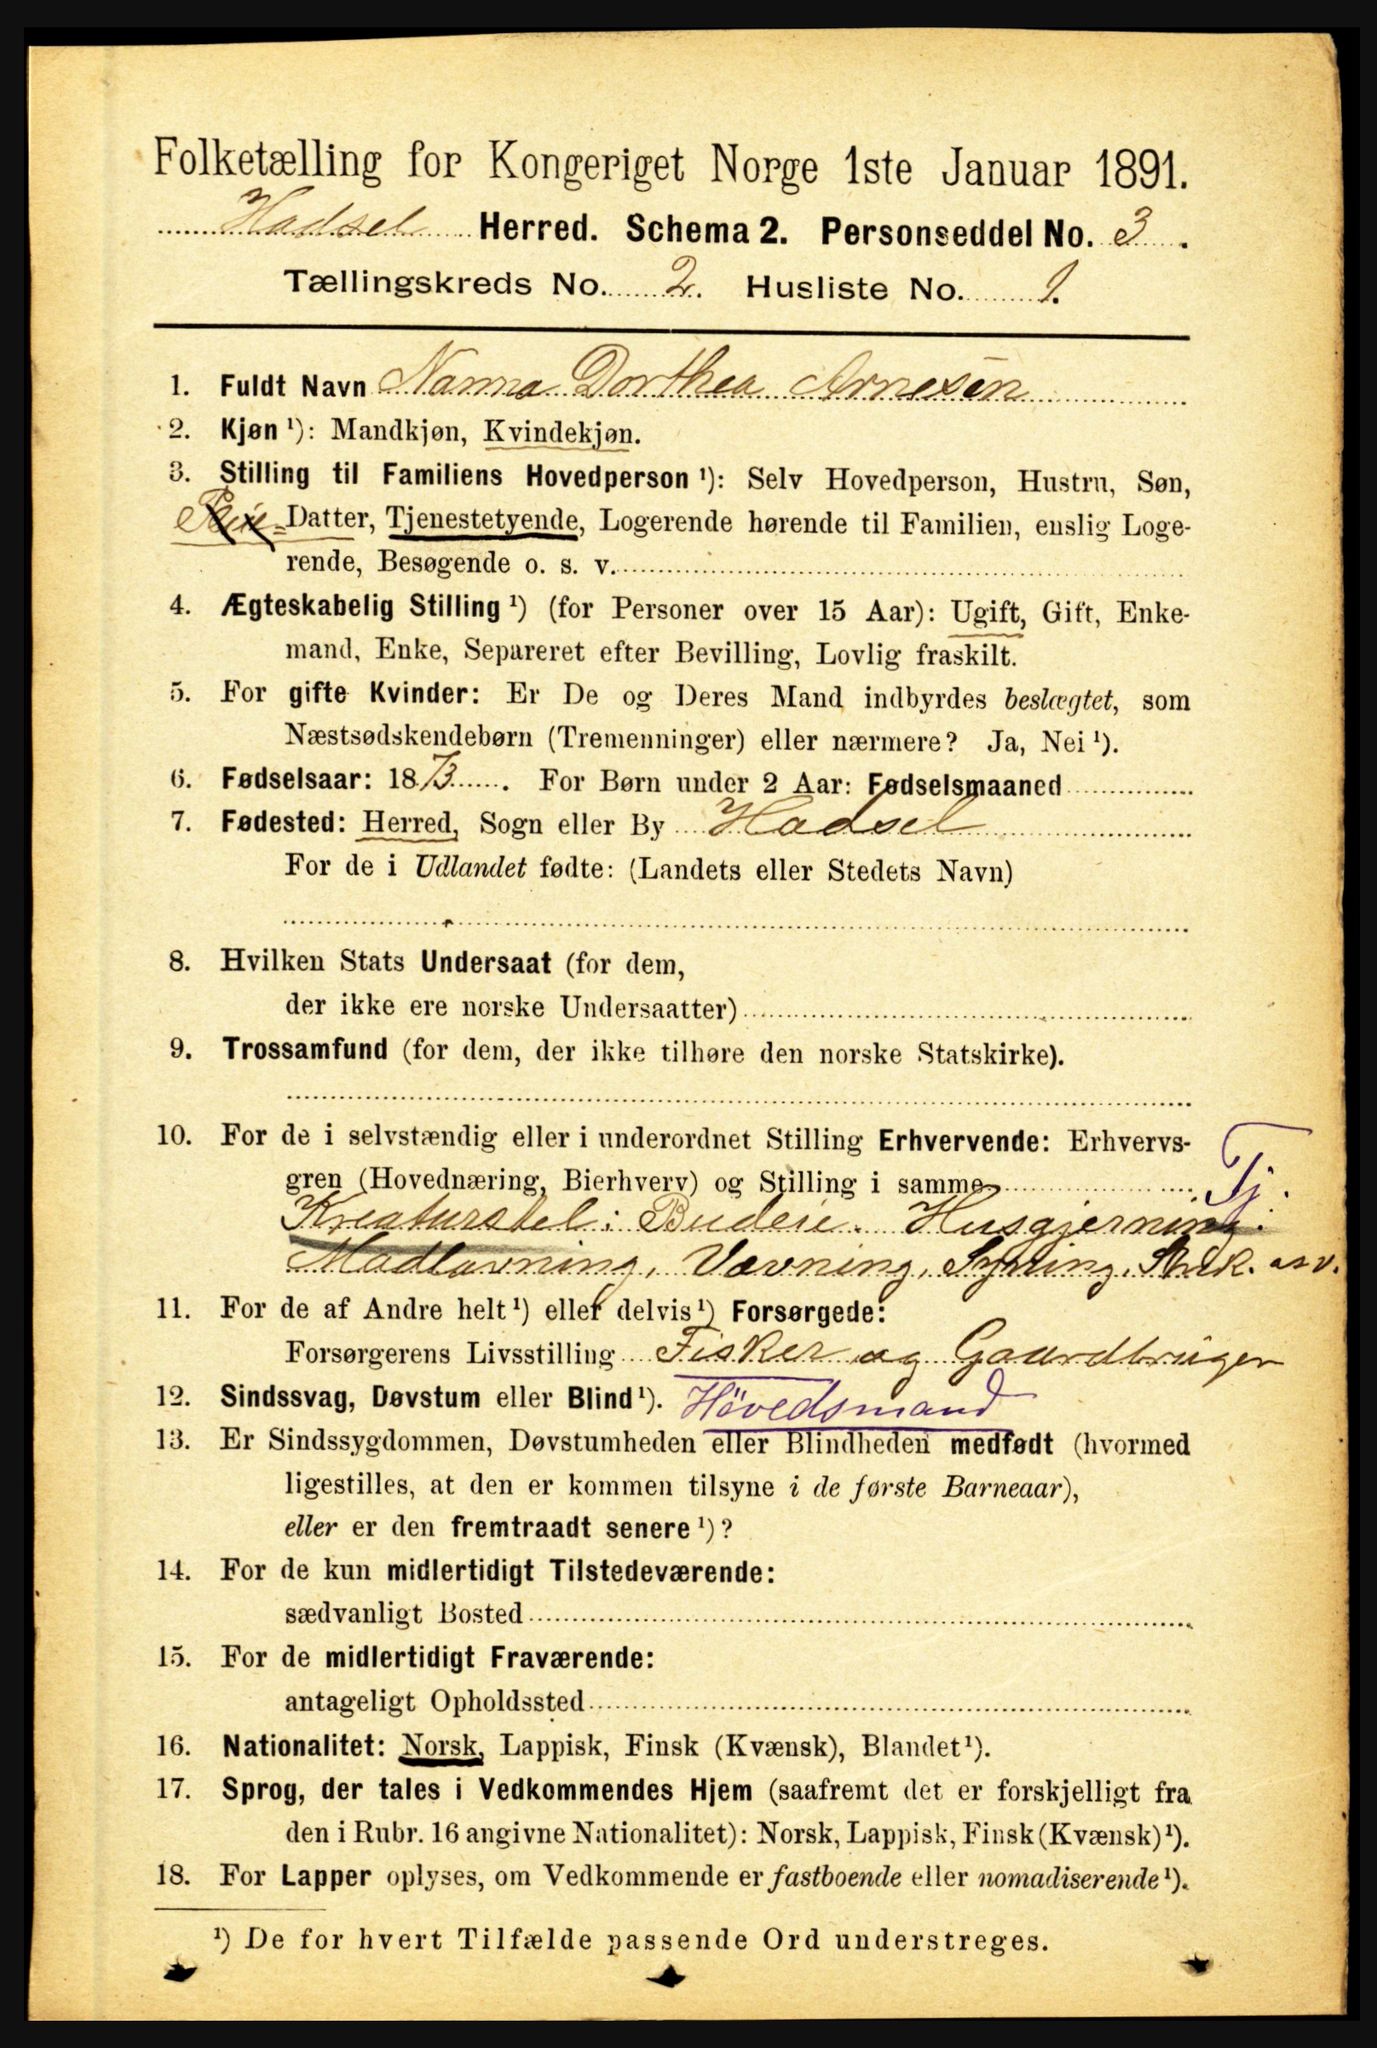 Folketælling for Kongeriget Norge 1ste Januar 1891.
Hadsel Herred. Schema 2. Personseddel No. 3.
Tællingskreds No. 2. Husliste No. 1.
1. Fuldt Navn Nanna Dorthea Arnesen
2. Kjøn ¹): Mandkjøn, Kvindekjøn.
3. Stilling til Familiens Hovedperson ¹): Selv Hovedperson, Hustru, Søn,
Datter, Tjenestetyende, Logerende hørende til Familien, enslig Loge-
rende, Besøgende o. s. v.
4. Ægteskabelig Stilling ¹) (for Personer over 15 Aar): Ugift, Gift, Enke-
mand, Enke, Separeret efter Bevilling, Lovlig fraskilt.
5. For gifte Kvinder: Er De og Deres Mand indbyrdes beslægtet, som
Næstsødskendebørn (Tremenninger) eller nærmere? Ja, Nei ¹).
6. Fødselsaar: 1873. For Børn under 2 Aar: Fødselsmaaned
7. Fødested: Herred, Sogn eller By Hadsel
For de i Udlandet fødte: (Landets eller Stedets Navn)
8. Hvilken Stats Undersaat (for dem,
der ikke ere norske Undersaatter)
9. Trossamfund (for dem, der ikke tilhøre den norske Statskirke).
10. For de i selvstændig eller i underordnet Stilling Erhvervende: Erhvervs-
gren (Hovednæring, Bierhverv) og Stilling i samme Tj.
Kreaturstel: Budeie. Husgjerning:
Madlavning, Vævning, Syning, Strik. osv.
11. For de af Andre helt ¹) eller delvis ¹) Forsørgede:
Forsørgerens Livsstilling Fisker og Gaardbruger
12. Sindssvag, Døvstum eller Blind ¹). Hövedsmand
13. Er Sindssygdommen, Døvstumheden eller Blindheden medfødt (hvormed
ligestilles, at den er kommen tilsyne i de første Barneaar),
eller er den fremtraadt senere ¹)?
14. For de kun midlertidigt Tilstedeværende:
sædvanligt Bosted
15. For de midlertidigt Fraværende:
antageligt Opholdssted
16. Nationalitet: Norsk, Lappisk, Finsk (Kvænsk), Blandet ¹).
17. Sprog, der tales i Vedkommendes Hjem (saafremt det er forskjelligt fra
den i Rubr. 16 angivne Nationalitet): Norsk, Lappisk, Finsk (Kvænsk) ¹).
18. For Lapper oplyses, om Vedkommende er fastboende eller nomadiserende ¹).
¹) De for hvert Tilfælde passende Ord understreges.